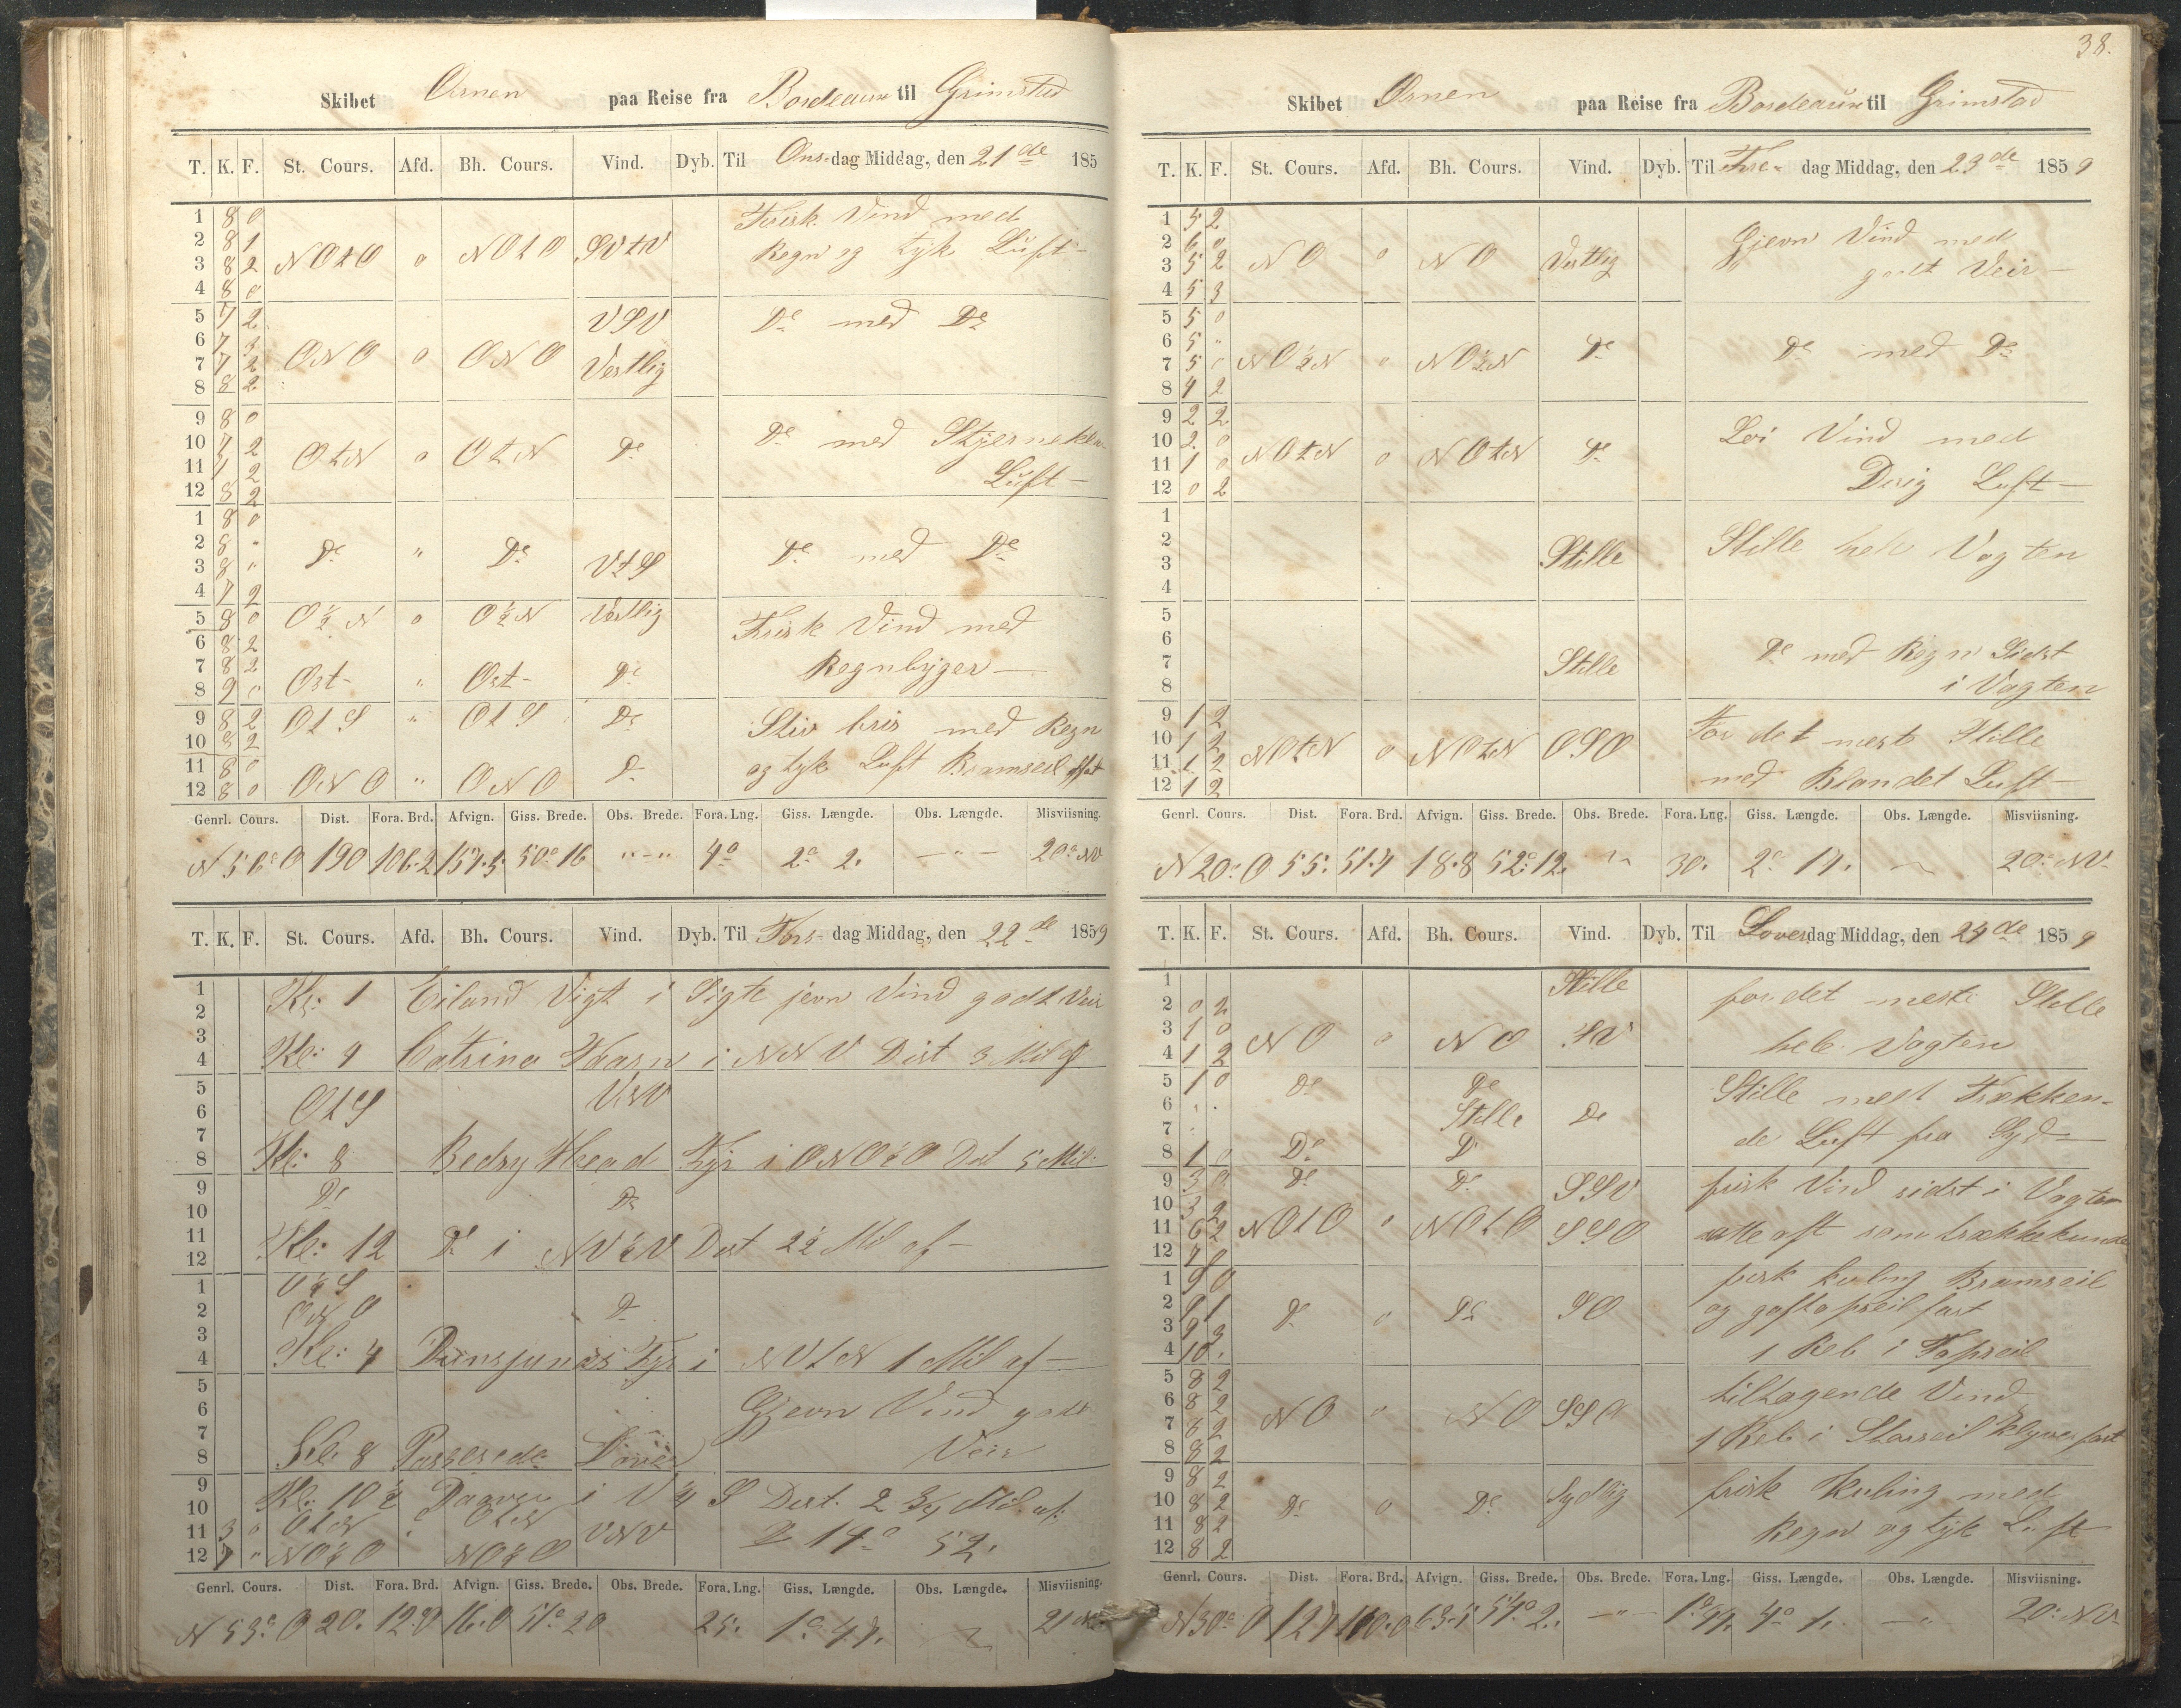 Skibet Ørnen paa Reise fra Bordeaux til Grimstad
T. K. F. St. Cours. Afd. Bh. Cours. Vind. Dyb. Til Ons-dag Middag, den 21de 185
1 8 0 Frisk Vind med
2 8 1 NOtO o NOtO SVtV Regn og tyk Luft
3 8 2
4 8 0
5 7 2 VSV Do med Do
6 7 3
7 7 2 ONO o ONO Vestlig
8 8 2
9 8 0
10 7 2 OtN o OtN Do Do med Stjerneklar
11 7 2 Luft
12 8 2
1 8 0
2 8 " Do " Do Do med Do
3 8 " VtS
4 7 2
5 8 0 O½N o O½N Vestlig Frisk Vind med
6 8 2
7 8 2 Regnbyger
8 9 0 Ost " Ost Do
9 8 2 OtS " OtS Do Stiv bris med Regn
10 8 2
11 8 0 og tyk Luft Bramseil fast
12 8 0 ONO " ONO Do
Genrl. Cours. Dist. Fora. Brd. Afvign. Giss. Brede. Obs. Brede. Fora. Lng. Giss. Længde. Obs. Længde. Misviisning.
N 56° O 190 106.2 157.5 50° 16 "-" 4° 2° 2. -"- 20° NV
T. K. F. St. Cours. Afd. Bh. Cours. Vind. Dyb. Til Tors-dag Middag, den 22de 1859
1 Kl: 1 Eiland Vigt i Sigte jevn Vind godt Veir
2
3
4 Kl: 4 Catrina i NNV Dist 3 Mil af
5 OtS VNV
6
7
8 Kl: 8 Head Fyr i ONO½O Dist 5 Mil
9 Do Do
10
11
12 Kl: 12 Do i NV½V Dist 2½ Mil af
1 O½S
2 ONO Do
3
4 Kl: 4 Fyr i NVtN 1 Mil af
5
6 Gjevn Vind godt
7
8 Kl: 8 Passerede Dover Veir
9 Kl: 10½ i V¼S Dist. 2¾ Mil af
10
11 3 0 OtN " OtN VNV 14° 52.
12 7 " NO½O NO½O
Genrl. Cours. Dist. Fora. Brd. Afvign. Giss. Brede. Obs. Brede. Fora. Lng. Giss. Længde. Obs. Længde. Misviisning.
N 53° O 20. 12.0 16.0 51° 20 25. 1° 47. 21 NV
38.
Skibet Ørnen paa Reise fra Bordeaux til Grimstad
T. K. F. St. Cours. Afd. Bh. Cours. Vind. Dyb. Til Fre-dag Middag, den 23de 1859
1 5 2
2 6 0 NO o NO Vestlig Gjevn Vind med
3 5 2 godt Veir
4 5 3
5 5 0
6 5 " NO½N " NO½N Do Do med Do
7 5 0
8 4 2
9 2 2
10 2 0 NOtN o NOtN Do Løi Vind med
11 1 0 Disig Luft
12 0 2
1
2 Stille hele Vagten
3 Stille
4
5
6 Do med Regn Sidst
7 Stille i Vagten
8
9 1 2
10 1 2 NOtN o NOtN OSO For det meste Stille
11 1 2
12 1 2 med Blandet Luft
Genrl. Cours. Dist. Fora. Brd. Afvign. Giss. Brede. Obs. Brede. Fora. Lng. Giss. Længde. Obs. Længde. Misviisning.
N 20° O 55. 51.7 18.8 52° 12. 30. 2° 17. 20° NV
T. K. F. St. Cours. Afd. Bh. Cours. Vind. Dyb. Til Løver-dag Middag, den 24de 1859
1 Stille for det meste Stille
2 0 2
3 1 0 NO o NO SV hele Vagten
4 1 2
5 1 0 Do Do Stille mest Trækken-
6 Stille Do
7 de Luft fra Syd
8 1 0 Do Do
9 3 0 Do Do SSV frisk Vind sidst i Vagten
10 3 2
11 6 2 NOtO " NOtO SSO
12 7 0
1 9 0 frisk kuling Bramseil
2 9 1 Do o Do SO og gaftopseil fast
3 9 3
4 10 . 1 Reb i Topseil
5 8 2 tiltagende Vind
6 8 2 NO " NO SSO
7 8 2 1 Reb i Storseil Klyver fast
8 8 2
9 8 2 frisk Kuling med
10 8 2 Do o Do Sydlig
11 8 2 Regn og tyk Luft
12 8 2
Genrl. Cours. Dist. Fora. Brd. Afvign. Giss. Brede. Obs. Brede. Fora. Lng. Giss. Længde. Obs. Længde. Misviisning.
N 30° O 127 110.0 63.5 54° 2. -"- 1° 44. 4° 1. -"- 20° NV